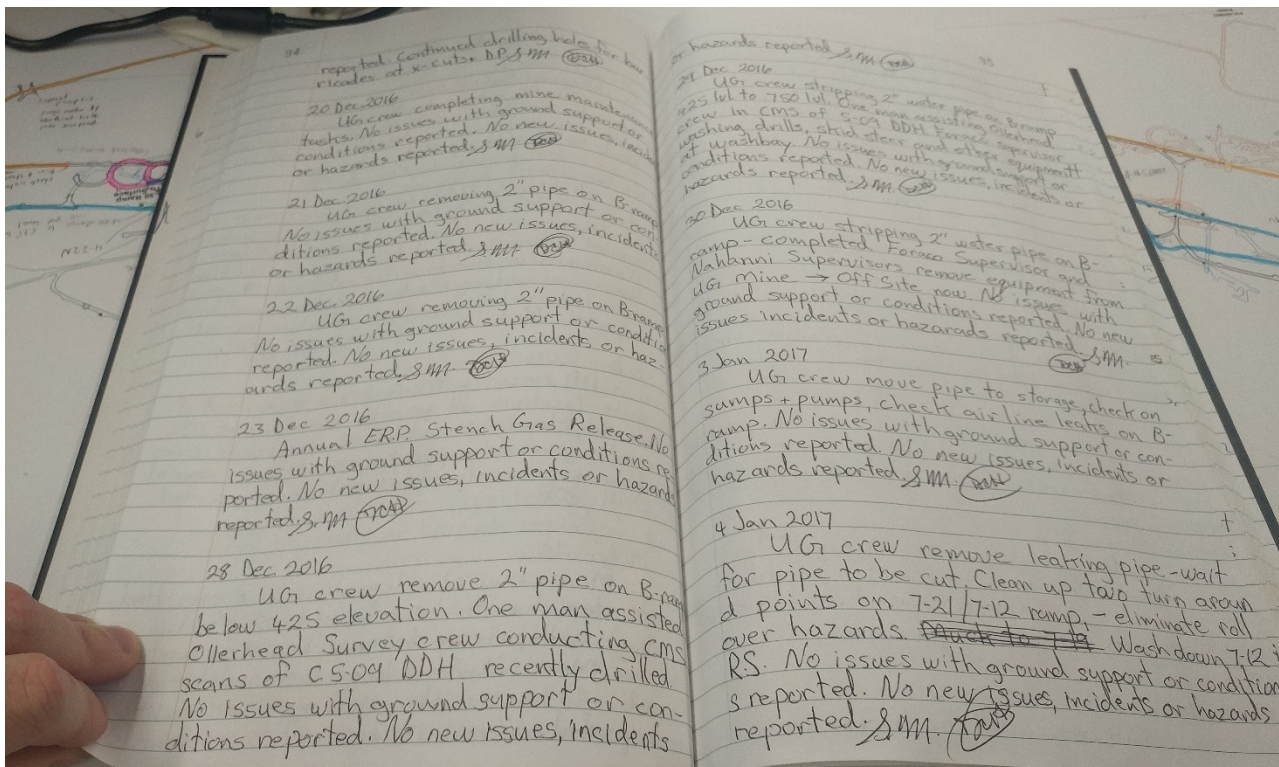 94
reported. Continued drilling holes for bar
ricades at x-cuts. DP S.M
20 Dec 2016
UG crew completing mine maintenance
tasks. No issues with ground support or
conditions reported. No new issues, incide
or hazards reported. S.M
21 Dec 2016
UG crew removing 2" pipe on B-ramp
No issues with ground support or con-
ditions reported. No new issues, incidents
or hazards reported. S.M
22 Dec 2016
UG crew removing 2" pipe on B-ramp
No issues with ground support or conditio
reported. No new issues, incidents or haz
ards reported. S.M.
23 Dec 2016
Annual E.R.P. Stench Gas Release. No
issues with ground support or conditions re
ported. No new issues, incidents or hazards
reported. S.M
28 Dec 2016
UG crew remove 2" pipe on B-ramp
below 425 elevation. One man assisted
Ollerhead Survey crew conducting CMS
scans of CS-09 DDH recently drilled
No issues with ground support or con-
ditions reported. No new issues, incidents
95
or hazards reported. S.M
29 Dec 2016
UG crew stripping 2" water pipe on B-ramp
425 lvl to 750 lvl. One man assisting Ollerhead
crew in CMS of S-09 DDH. Foraco supervisor
washing drills, skid steer and other equipment
at washbay. No issues with ground support or
conditions reported. No new issues, incidents or
hazards reported. S.M.
30 Dec 2016
UG crew stripping 2" water pipe on B-
ramp - completed. Foraco Supervisor and
Nahanni Supervisors remove equipment from
UG Mine → Off Site now. No issues with
ground support or conditions reported. No new
issues incidents or hazarads reported. S.M.
3 Jan 2017
UG crew move pipe to storage, check on
sumps + pumps, check air line leaks on B-
ramp. No issues with ground support or con-
ditions reported. No new issues, incidents or
hazards reported. S.M.
4 Jan 2017
UG crew remove leaking pipe - wait
for pipe to be cut. Clean up two turn aroun
d points on 7-21/7-12 ramp, - eliminate roll
over hazards. Wash down 7-12
RS. No issues with ground support or condition
s reported. No new issues, incidents or hazards
reported. S.M.